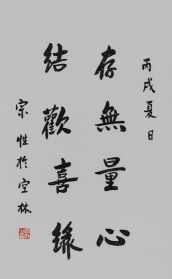 丙戌夏日
存無量心
結歡喜緣
宗性於空林